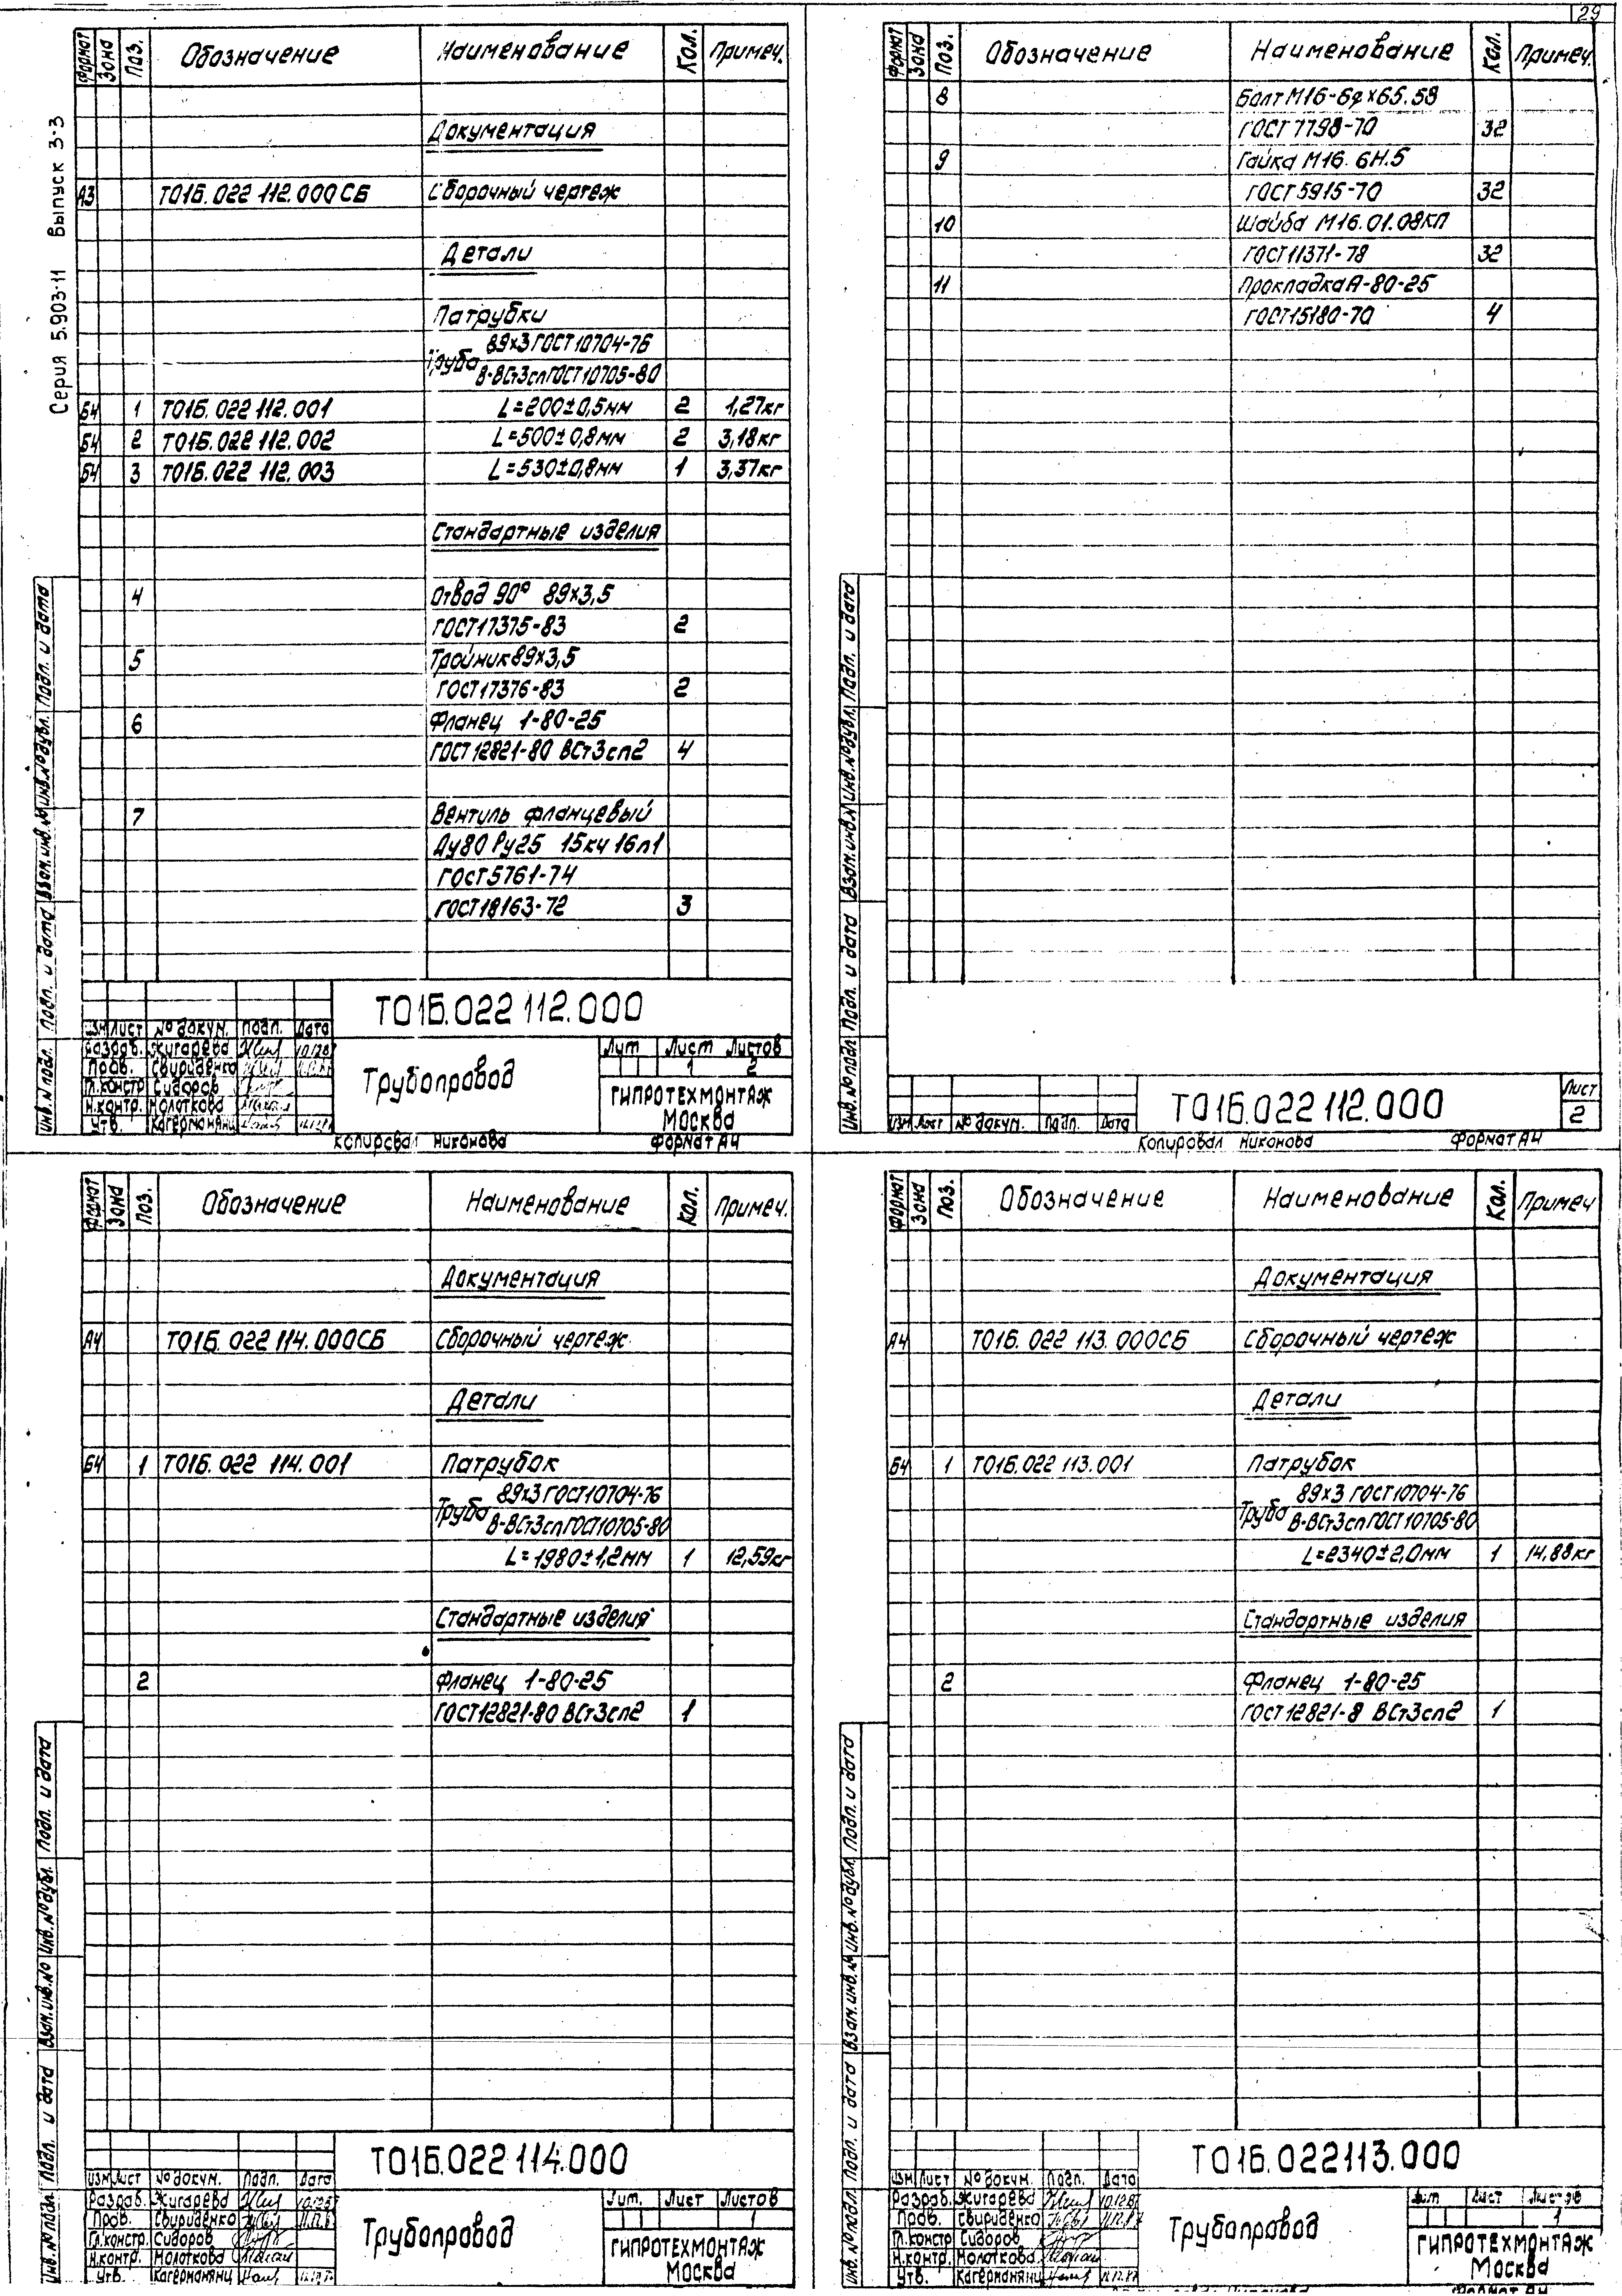 29
Серия 5.903-11 Выпуск 3-3
Формат Зона Поз. Обозначение Наименование Кол. Примеч.
Документация
А3 Т01Б.022 112.000СБ Сборочный чертеж
Детали
Патрубки
89×3 ГОСТ 10704-76
Труба
В-ВСт3сп ГОСТ 10705-80
Б4 1 Т01Б.022 112.001 L=200±0,5мм 2 1,27кг
Б4 2 Т01Б.022 112.002 L=500±0,8мм 2 3,18кг
Б4 3 Т01Б.022 112.003 L=530±0,8мм 1 3,37кг
Стандартные изделия
4 Отвод 90° 89×3,5
ГОСТ 17375-83 2
5 Тройник 89×3,5
ГОСТ 17376-83 2
6 Фланец 1-80-25
ГОСТ 12821-80 ВСт3сп2 4
7 Вентиль фланцевый
Ду80 Ру25 15кч 16п1
ГОСТ 5761-74
ГОСТ 18163-72 3
Инв.№подл. Подп. и дата Взам.инв.№ Инв.№дубл. Подп. и дата
Т01Б.022 112.000
Изм Лист № докум. Подп. Дата
Разраб. Жигарева
Пров. Свириденко
Гл.констр Сидоров
Н.контр. Молоткова
Утв. Кагерманянц
Трубопровод
Лит Лист Листов
1 2
ГИПРОТЕХМОНТАЖ
Москва
Копировал Никонова Формат А4
Формат Зона Поз. Обозначение Наименование Кол. Примеч.
8 Болт М16-6g×65.58
ГОСТ 7798-70 32
9 Гайка М16.6Н.5
ГОСТ 5915-70 32
10 Шайба М16.01.08КП
ГОСТ 11371-78 32
11 Прокладка А-80-25
ГОСТ 15180-70 4
Инв.№подл Подп. и дата Взам.инв.№ Инв.№дубл. Подп. и дата
Изм Лист № докум. Подп. Дата
Т01Б.022 112.000
Лист
2
Копировал Никонова Формат А4
Формат Зона Поз. Обозначение Наименование Кол. Примеч.
Документация
А4 Т01Б.022 114.000СБ Сборочный чертеж
Детали
Б4 1 Т01Б.022 114.001 Патрубок
89×3 ГОСТ 10704-76
Труба
В-ВСт3сп ГОСТ 10705-80
L=1980±1,2мм 1 12,59кг
Стандартные изделия
2 Фланец 1-80-25
ГОСТ 12821-80 ВСт3сп2 1
Инв.№подл. Подп. и дата Взам.инв.№ Инв.№дубл. Подп. и дата
Т01Б.022 114.000
Изм Лист № докум. Подп. Дата
Разраб. Жигарева
Пров. Свириденко
Гл.констр. Сидоров
Н.контр. Молоткова
Утв. Кагерманянц
Трубопровод
Лит. Лист Листов
1
ГИПРОТЕХМОНТАЖ
Москва
Формат Зона Поз. Обозначение Наименование Кол. Примеч
Документация
А4 Т01Б.022 113.000СБ Сборочный чертеж
Детали
Б4 1 Т01Б.022 113.001 Патрубок
89×3 ГОСТ 10704-76
Труба
В-ВСт3сп ГОСТ 10705-80
L=2340±2,0мм 1 14,88кг
Стандартные изделия
2 Фланец 1-80-25
ГОСТ 12821-8 ВСт3сп2 1
Инв.№подл. Подп. и дата Взам.инв.№ Инв.№дубл. Подп. и дата
Т01Б.022113.000
Изм Лист № докум. Подп. Дата
Разраб. Жигарева
Пров. Свириденко
Гл.констр Сидоров
Н.контр. Молоткова
Утв. Кагерманянц
Трубопровод
Лит Лист Листов
1
ГИПРОТЕХМОНТАЖ
Москва
Формат А4